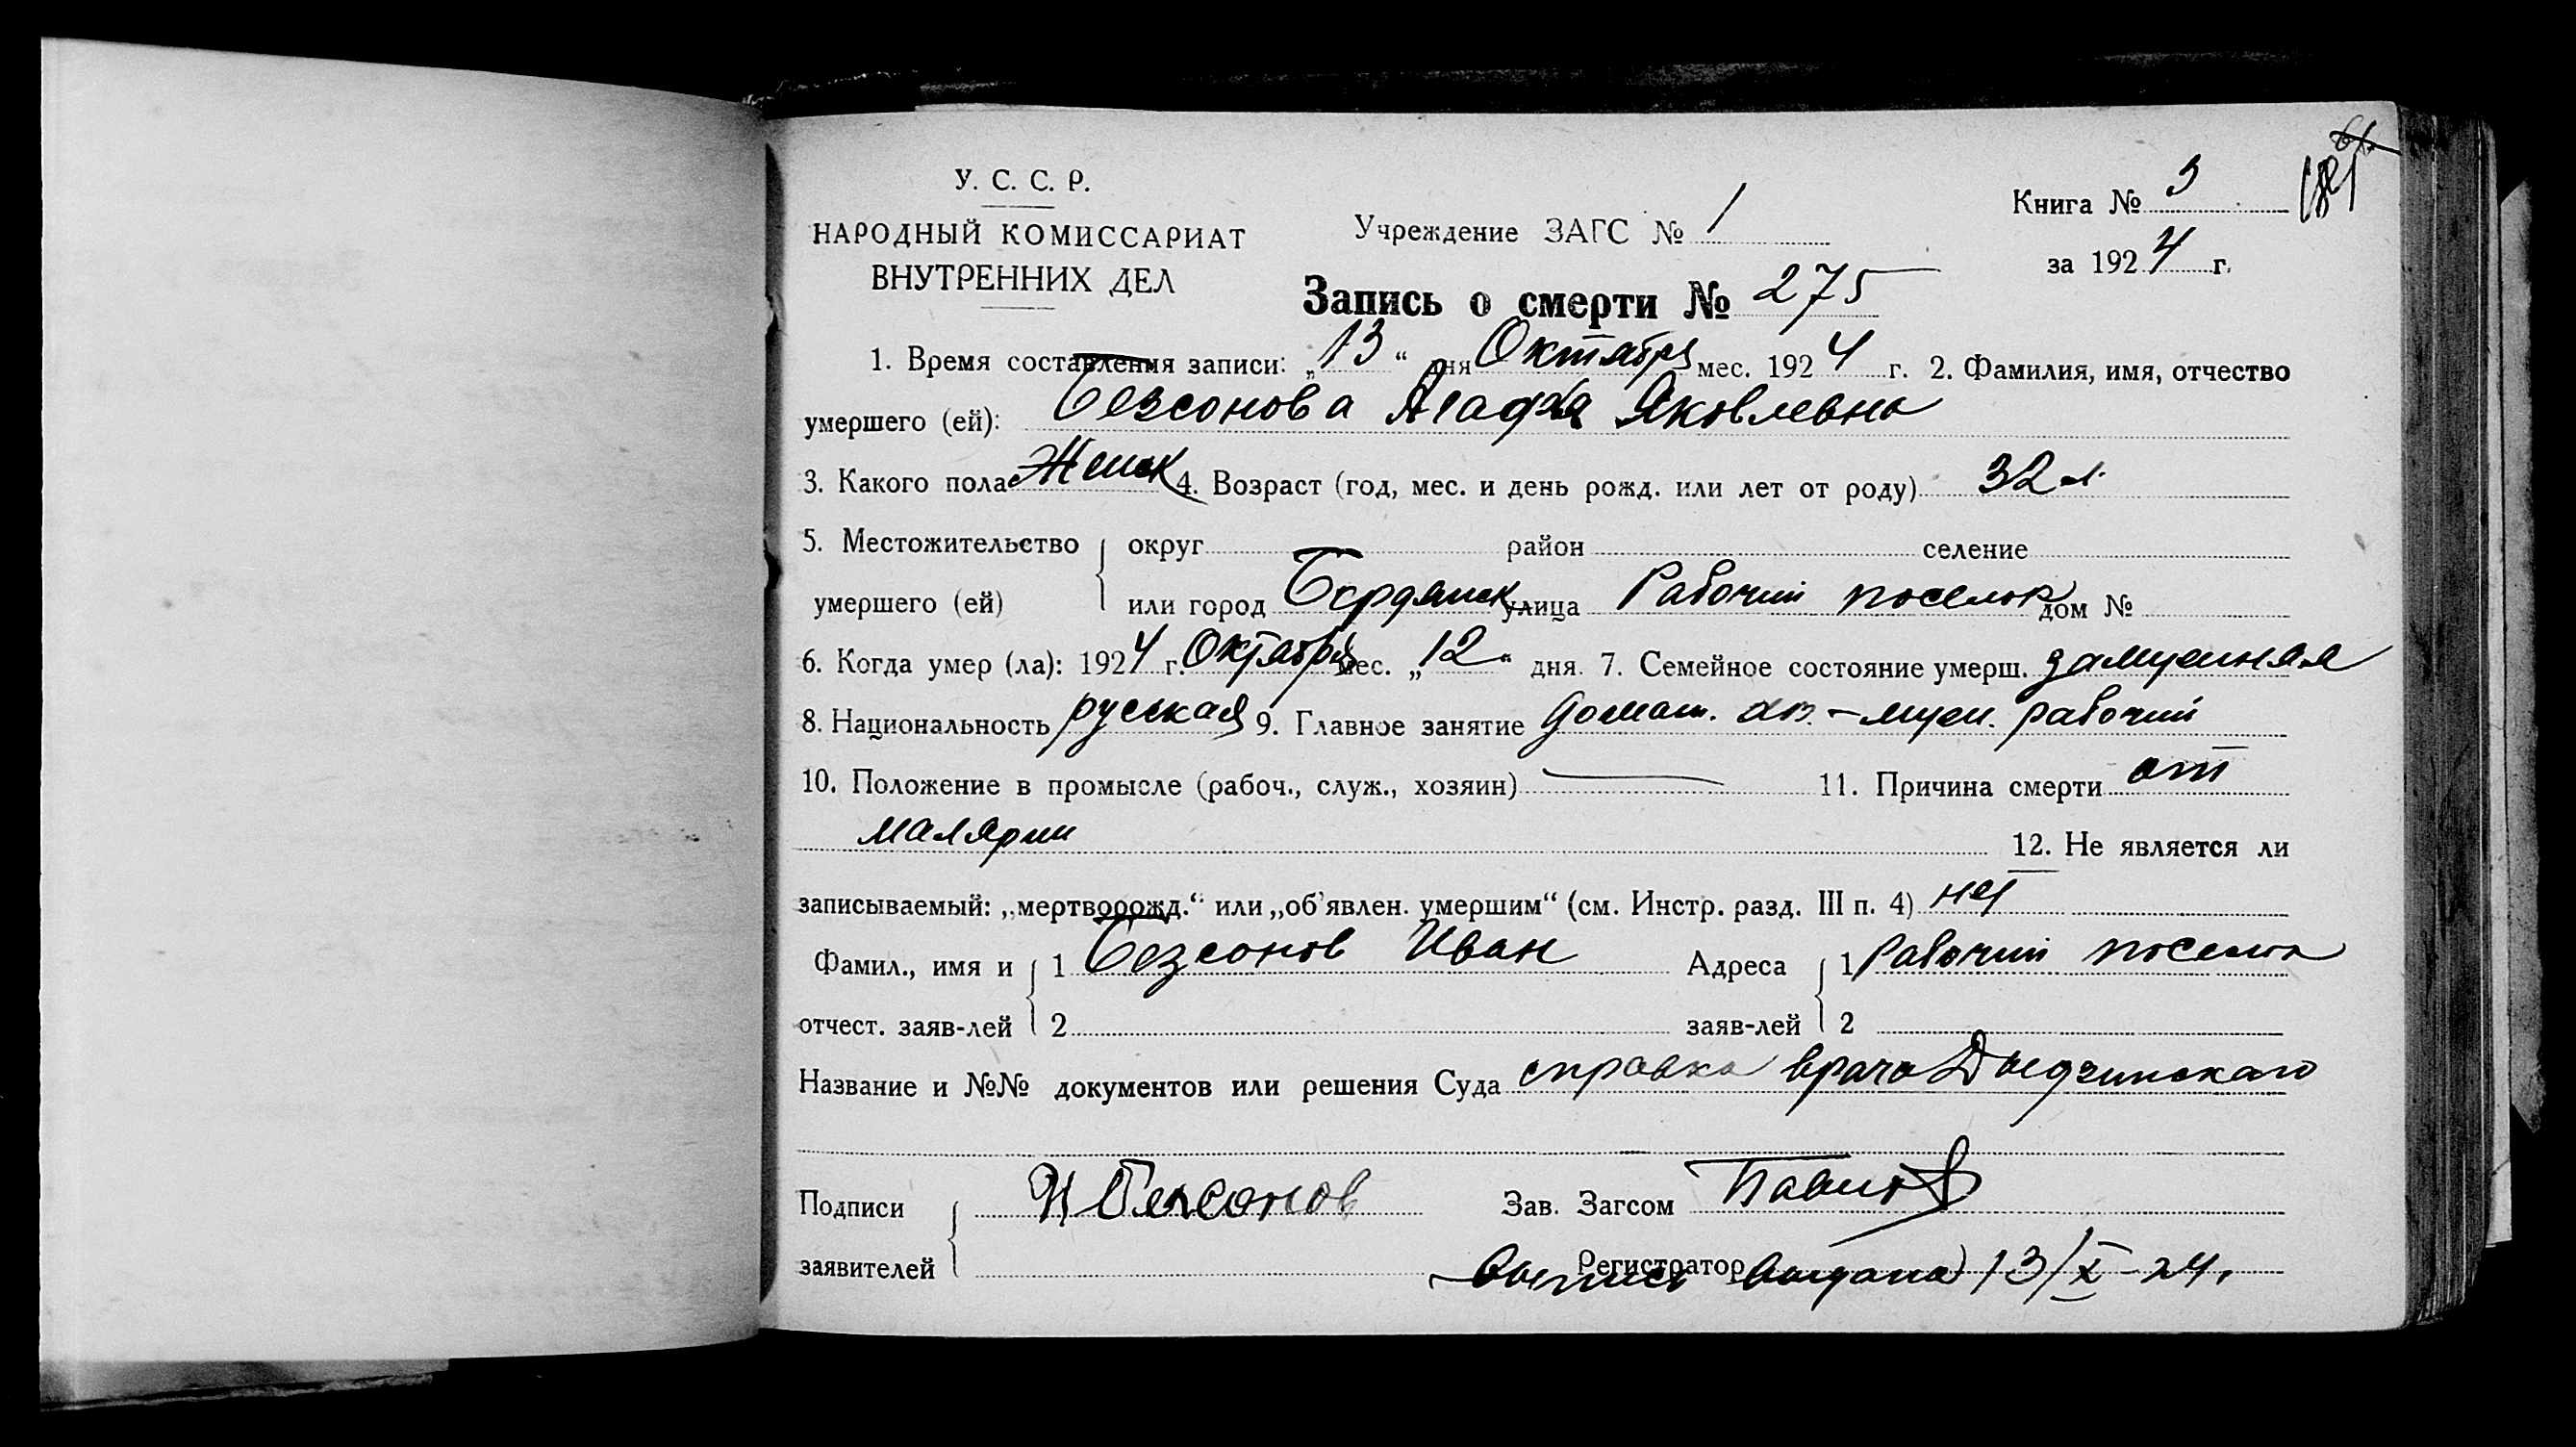 У. С. С. Р.
НАРОДНЫЙ КОМИССАРИАТ
ВНУТРЕННИХ ДЕЛ
Учреждение ЗАГС № 1
Книга № 3
за 1924 г.
Запись о смерти № 275
1. Время составления записи: „13“ дня Октября мес. 1924 г. 2. Фамилия, имя, отчество
умершего (ей): Безсонова Агафия Яковлевна
3. Какого пола Женск 4. Возраст (год, мес. и день рожд. или лет от роду) 32 л.
5. Местожительство округ район селение
умершего (ей) или город Бердянск улица Рабочий поселок дом №
6. Когда умер (ла): 1924 г. Октября мес. „12“ дня. 7. Семейное состояние умерш. замужняя
8. Национальность руская 9. Главное занятие домаш. хоз. – муж. рабочий
10. Положение в промысле (рабоч., служ., хозяин) 11. Причина смерти от
малярии
12. Не является ли
записываемый: „мертворожд.“ или „об’явлен. умершим“ (см. Инстр. разд. III п. 4) нет
Фамил., имя и 1 Безсонов Иван Адреса 1 Рабочий поселок
отчест. заяв-лей 2 заяв-лей 2
Название и №№ документов или решения Суда справка врача
Подписи И Безсонов Зав. Загсом
заявителей Регистратор
выпись выдана 13/X–24.